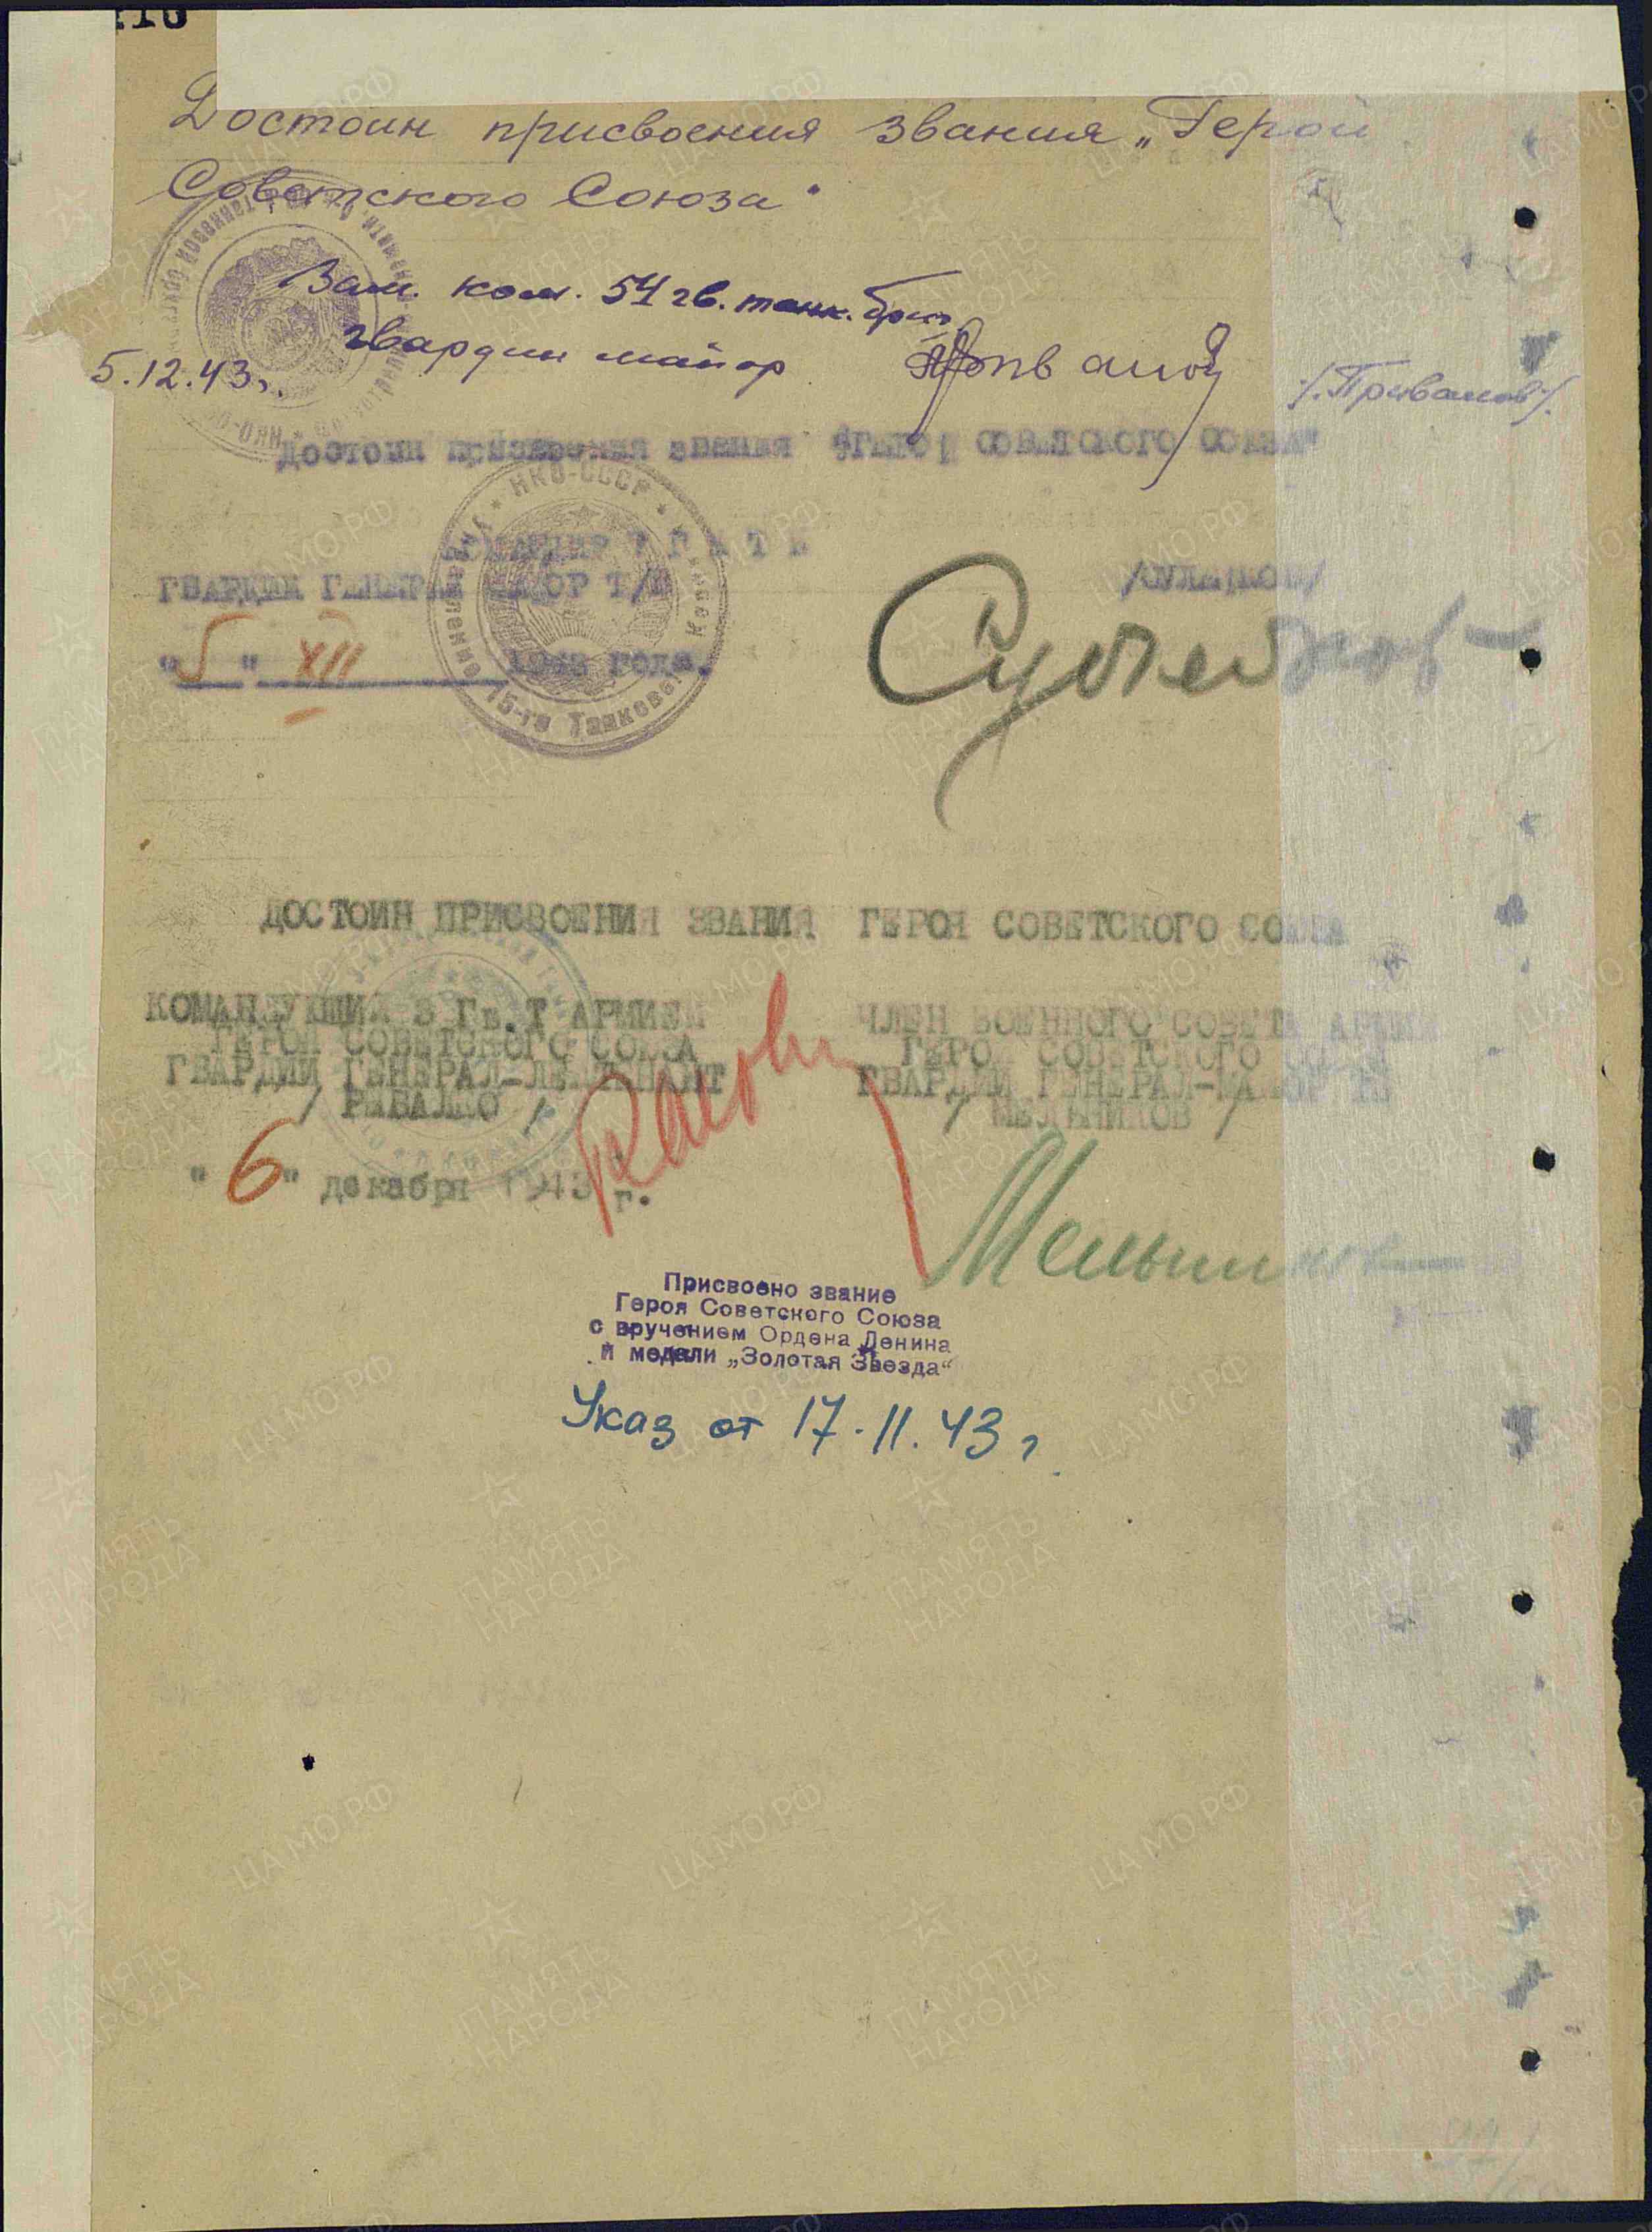 Достоин присвоения звания „Герой
Советского Союза"
Зам. ком. 54 гв. танк. бриг.
гвардии майор
5.12.43г.
Достоин присвоения звания "Герой Советского Союза"
НКО-СССР
15-го Танковой
ГВАРДИИ ГЕНЕРАЛ МАЙОР Т/В
"5" XII 1943 года.
ДОСТОИН ПРИСВОЕНИЯ ЗВАНИЯ ГЕРОЯ СОВЕТСКОГО СОЮЗА
КОМАНДУЮЩИЙ 3 Гв.Т АРМИЕЙ
ГЕРОЙ СОВЕТСКОГО СОЮЗА
ГВАРДИИ ГЕНЕРАЛ-ЛЕЙТЕНАНТ
/ РЫБАЛКО /
"6" декабря 1943 г.
ЧЛЕН ВОЕННОГО СОВЕТА АРМИИ
ГЕРОЙ СОВЕТСКОГО СОЮЗА
ГВАРДИИ ГЕНЕРАЛ-МАЙОР ТВ
/ МЕЛЬНИКОВ /
Мельников
Присвоено звание
Героя Советского Союза
с вручением Ордена Ленина
и медали „Золотая Звезда"
Указ от 17.11.43 г.
ПАМЯТЬ НАРОДА
ЦА МО РФ